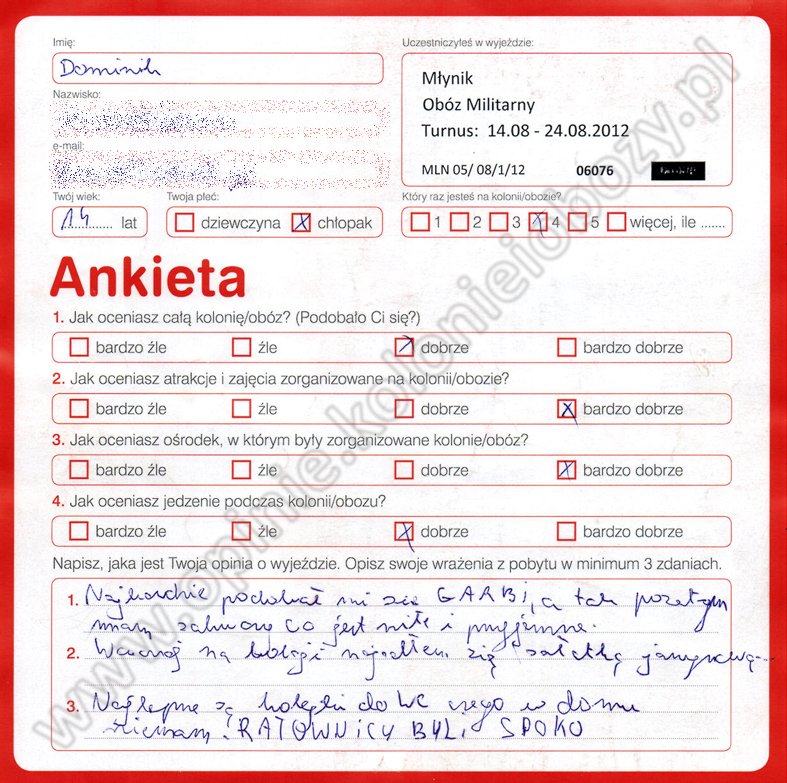 Imię:
Dominik
Uczestniczyłeś w wyjeździe:
Młynik
Obóz Militarny
Turnus: 14.08 - 24.08.2012
MLN 05/ 08/1/12 06076
Nazwisko:
e-mail:
Twój wiek:
14 lat
Twoja płeć:
dziewczyna chłopak
Który raz jesteś na kolonii/obozie?
1 2 3 4 5 więcej, ile .......
Ankieta
1. Jak oceniasz całą kolonię/obóz? (Podobało Ci się?)
bardzo źle źle dobrze bardzo dobrze
2. Jak oceniasz atrakcje i zajęcia zorganizowane na kolonii/obozie?
bardzo źle źle dobrze bardzo dobrze
3. Jak oceniasz ośrodek, w którym były zorganizowane kolonie/obóz?
bardzo źle źle dobrze bardzo dobrze
4. Jak oceniasz jedzenie podczas kolonii/obozu?
bardzo źle źle dobrze bardzo dobrze
Napisz, jaka jest Twoja opinia o wyjeździe. Opisz swoje wrażenia z pobytu w minimum 3 zdaniach.
1. podobał mi się GARBI, a tak pozatym
co jest miłe i przyjemne.
2. Wczoraj na kolacji najadłem się sałatką
3. Najlepsze są kolejki do WC czego w domu
nie mam! RATOWNICY BYLI SPOKO
www.opinie.kolonieiobozy.pl